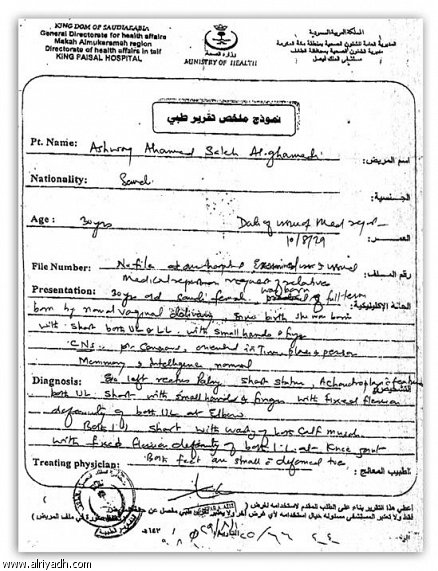 KING DOM OF SAUDIARABIA
General Directorate for health affairs
Makah Almukaramah region
Directorate of health affairs in taif
KING FAISAL HOSPITAL
وزارة الصحة
MINISTRY OF HEALTH
المملكة العربية السعودية
المديرية العامة للشئون الصحية بمنطقة مكة المكرمة
مديرية الشئون الصحية بمحافظة الطائف
مستشفى الملك فيصل
نموذج ملخص تقرير طبي
Pt. Name: Ashwag Ahamed Saleh Al-ghamedi اسم المريض:
Nationality: Saudi الجنسية:
Age: 30 yrs Date of issued Med العمر:
10/8/29
File Number: No file at our hospital Examined and issued رقم الملف:
medical report on request of relative
Presentation: 30 yrs old Saudi female was born full term الحالة الإكلينيكية:
born by normal vaginal delivery since birth she was born
with short both UL & LL with small hands & fingers
CNS: conscious, oriented in Time, place & person
Memory & Intelligence normal
Diagnosis: short stature, Achondroplasia التشخيص:
both UL short with small hands & fingers with fixed flexion
deformity of both UL at Elbow
Both LL short with wasting of both calf muscle
with fixed flexion deformity of both LL at Knee joint
Both feet are small & deformed toe
Treating physician: الطبيب المعالج:
أعطي هذا التقرير بناء على الطلب المقدم لاستخدامه لغرض
فقط ولا تعتبر المستشفى مسئولة حيال استخدامه لأي غرض آخر
www.alriyadh.com